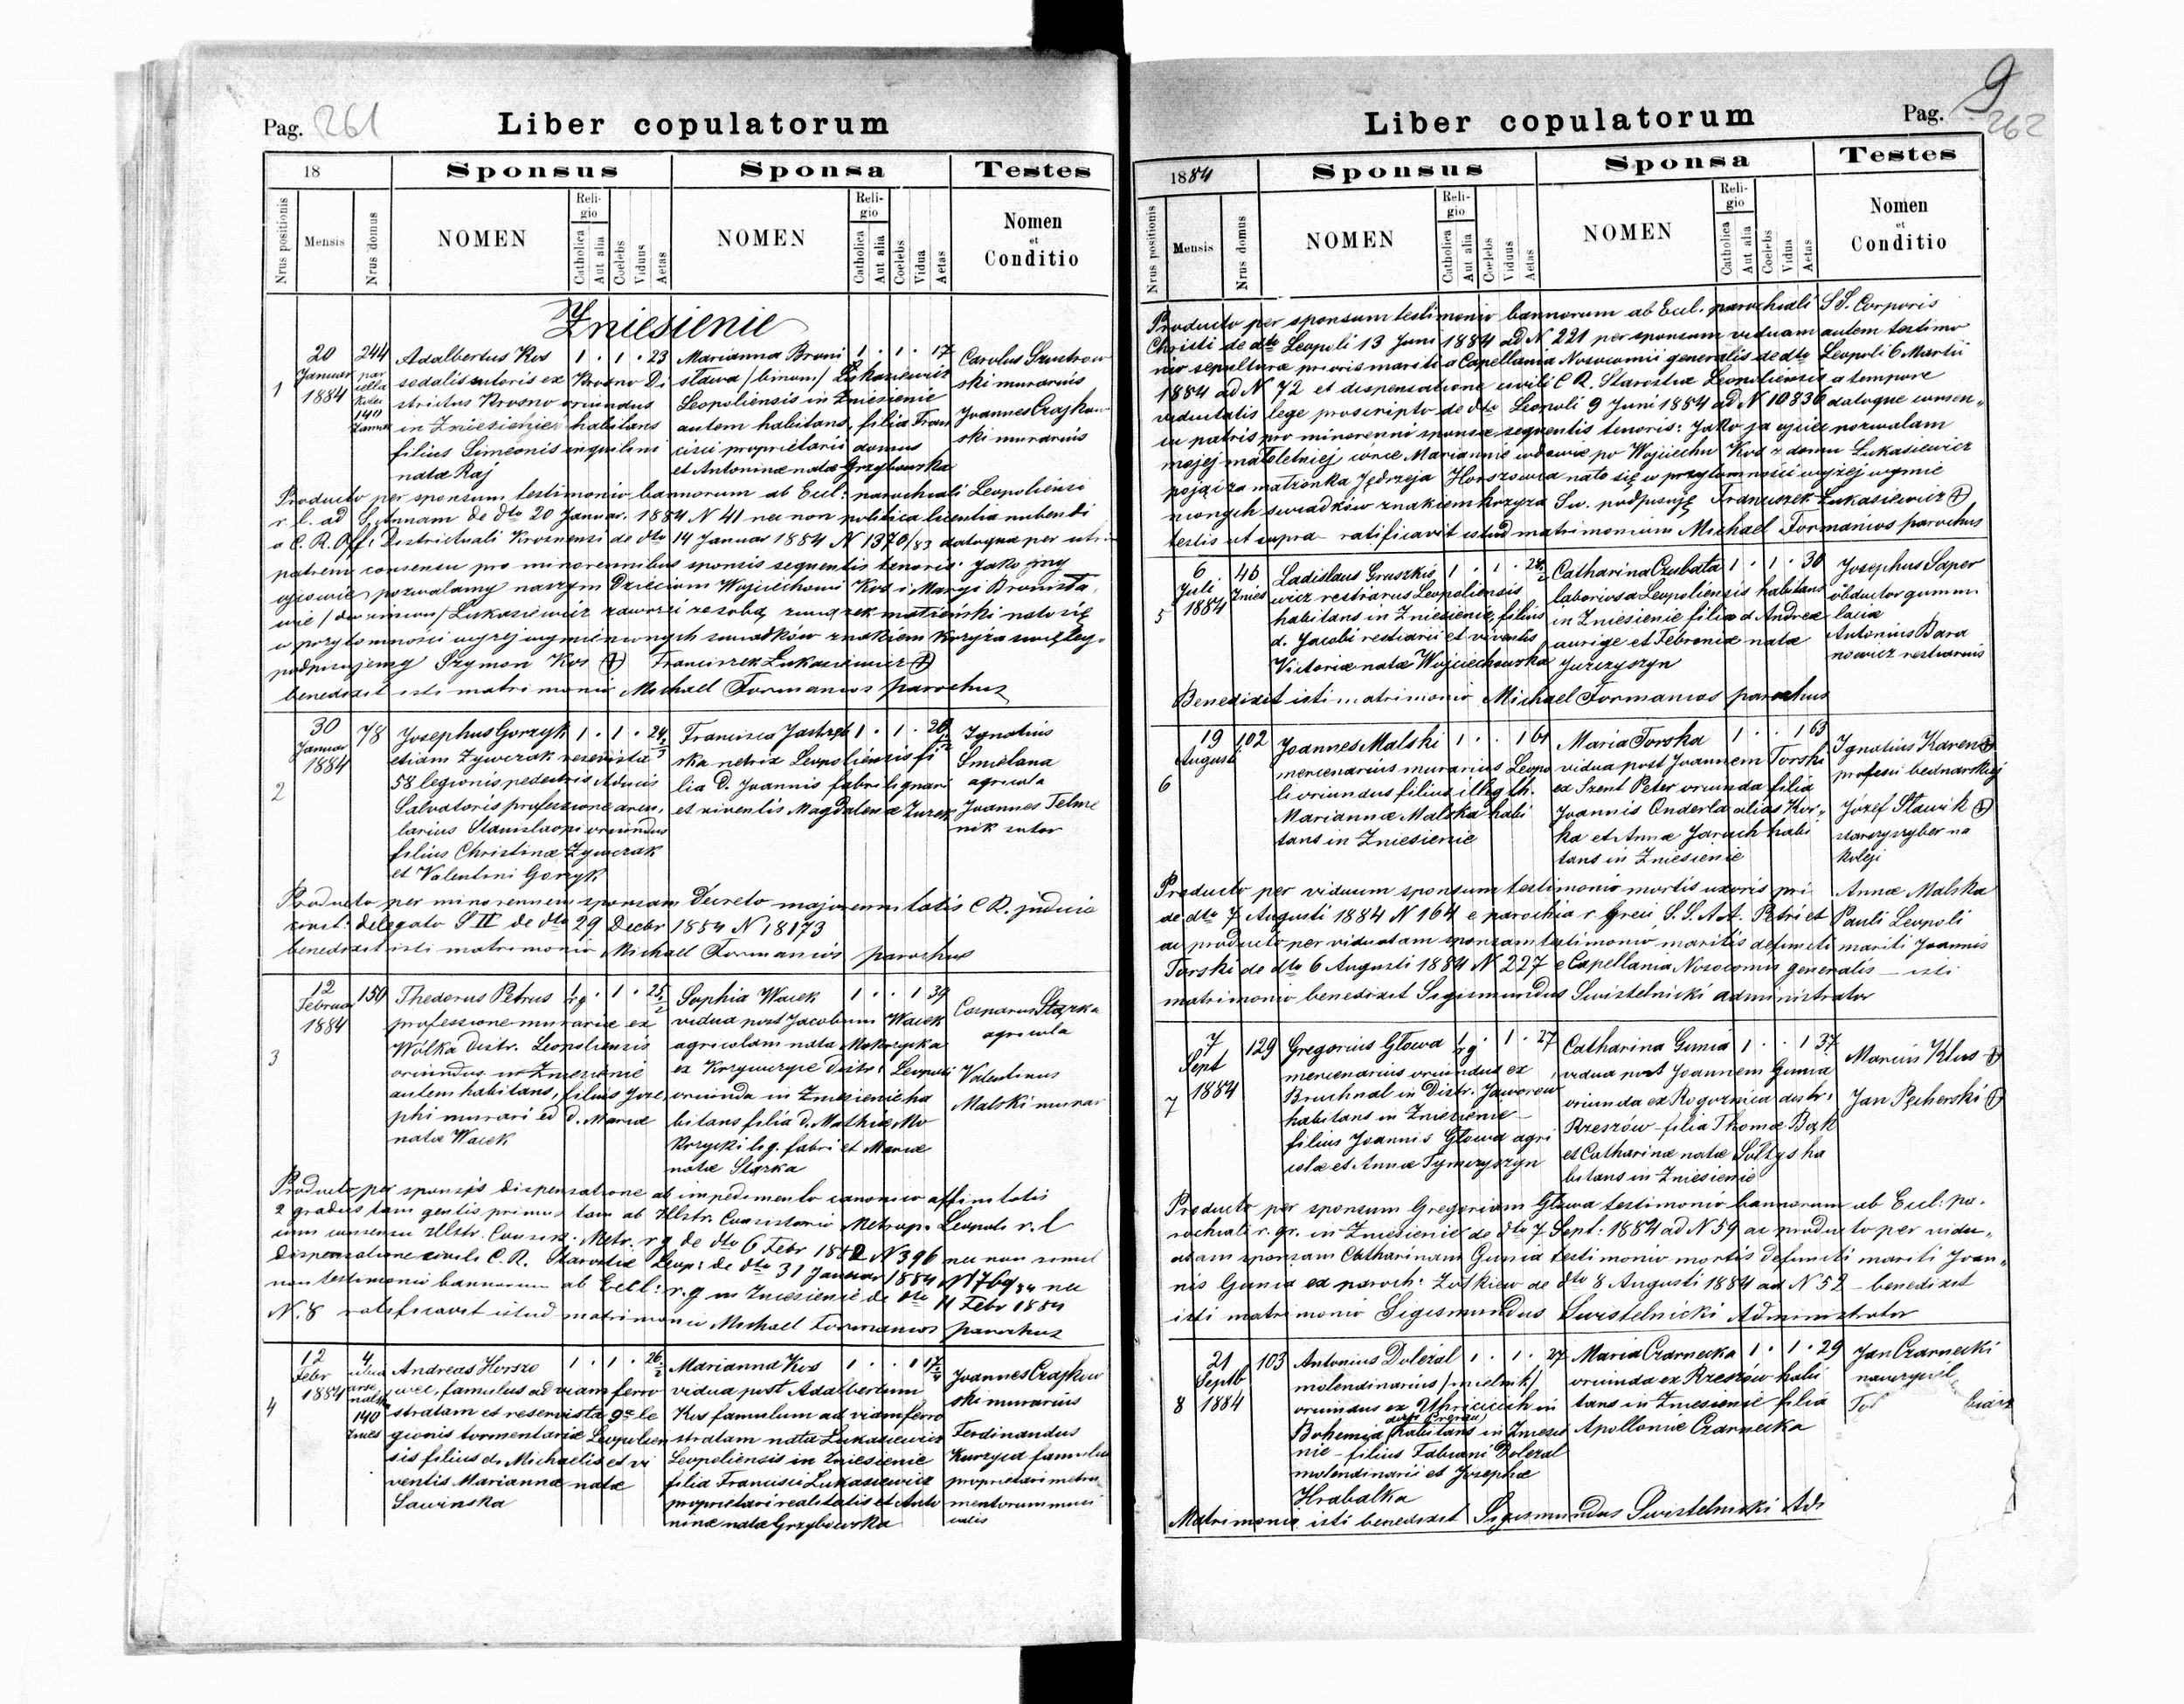 Pag. 261
Liber copulatorum
18
Sponsus
Sponsa
Testes
Nrus positionis
Mensis
Nrus domus
NOMEN
Religio
Catholica
Aut alia
Coelebs
Viduus
Aetas
NOMEN
Religio
Catholica
Aut alia
Coelebs
Vidua
Aetas
Nomen
et
Conditio
Zniesienie
1
20
Januar
1884
244
140
Adalbertus Kos 1 . 1 . 23
sodalis sutoris ex Krosno Di
strictus Krosno oriundus
in Zniesienie habitans
filius Simeonis inquilini
nata Raj
Marianna Broni 1 . 1 . 17
slawa /binom/ Łukasiewicz
Leopoliensis in Zniesienie
autem habitans, filia Fran
cisci proprietarii domus
et Antoninæ nata Grzybowska
Carolus Szustrow
ski murarius
Joannes Czajkow
ski murarius
Producto per sponsum testimonio bannorum ab Eccl: parochiali Leopoliensi
r. l. ad S. Annam de dto 20 Januar. 1884 N 41 nec non politica licentia nubendi
a C. R. Off: Districtuali Krosnensi de dto 14 Januar 1884 N 1370/83 datoque per utri
patrem consensu pro minorennibus sponsis sequentis tenoris: Jako my
ojcowie pozwalamy naszym Dzieciom Wojciechowi Kos i Maryi Bronisła,
wie /dwuimion/ Łukasiewicz zawrzeć ze sobą związek małżeński na to się
w przytomności wyżej wymienionych świadków znakiem Krzyża święteg.
podpisujemy Szymon Kos (+) Franciszek Łukasiewicz (+)
benedixit isti matrimonio Michael Formanios parochus
2
30
Januar
1884
78
Josephus Gorzyk 1 . 1 . 24
etiam Zywczak reservista
58 legionis pedestris Aducis
Salvatoris professione aren,
larius Stanislaopi oriundus
filius Christinæ Zywczak
et Valentini Gorzyk
Francisca Jastrzęb 1 . 1 . 20
ska netrix Leopoliensis fi
lia D. Joannis fabri lignari
et viventis Magdalenæ Zurek
Ignatius
Smietana
agricola
Joannes Telme
nik sutor
Producto per minorennem sponsam Decreto majorennitatis C R. judicio
const: delegato S II de dto 29 Decbr 1854 N 18173
benedixit isti matrimonio Michael Formanios parochus
3
12
Februar
1884
150
Thedorus Petrus 1 r.g. . 1 . 25
professione murarie ex
Wólka distr. Leopoliensis
oriundus in Zniesienie
autem habitans, filius Jose,
phi murari ed d. Mariæ
nata Wacek
Sophia Wacek 1 . . 1 39
vidua post Jacobum Wacek
agricolam nata Mokrzycka
ex Krzywczyce Distr: Leopoli
oriunda in Zniesienie ha
bitans filia d. Mathiæ Mo
krzycki lig. fabri et Mariæ
natæ Starka
Casparus Starka
agricola
Valentinus
Malski murar
Producto per sponsos dispensatione ab impedimento canonico affinitatis
2 gradus tam gentis primus tam ab Illstr. Consistorio Metrop. Leopoli r. l
cum consensu Illstr. Consis: Metr. r g de dto 6 Febr 1882 N 396 nec non simul
dispensatione civile C. R. Starostiæ Leop: de dto 31 Januar 1884 nec
non testimonii bannorum ab Eccl: r. g in Zniesienie de dto 11 Febr 1884
N. 8 ratificavit istud matrimonio Michael Formanios parochus
4
12
Febr
1884
4
140
Znies
Andreas Horszo 1 . 1 . 26
wec, famulus ad viam ferro
stratam et reservista 9æ le
gionis tormentariæ Leopolien
sis filius d. Michaelis et vi
ventis Mariannæ natæ
Sawinska
Marianna Kos 1 . . 1 17
vidua post Adalbertum
Kos famulum ad viam ferro
stratam nata Łukasiewicz
Leopoliensis in Zniesienie
filia Francisci Łukasiewicz
proprietari realitatis et Anto
ninæ nata Grzybowska
Joannes Czajkow
ski murarius
Ferdinandus
Kurzyca famulus
proprietari
mentorum musi
calis
Pag. 9
262
Liber copulatorum
1884
Sponsus
Sponsa
Testes
Nrus positionis
Mensis
Nrus domus
NOMEN
Religio
Catholica
Aut alia
Coelebs
Viduus
Aetas
NOMEN
Religio
Catholica
Aut alia
Coelebs
Vidua
Aetas
Nomen
et
Conditio
Producto per sponsum testimonio bannorum ab Eccl. parochiali SS. Corporis
Christi de dto Leopoli 13 Juni 1884 ad N 221 per sponsam viduam autem testimo
nio sepulturæ prioris mariti a Capellania Nosocomii generalis de dto Leopoli 6 Martii
1884 ad N 72 et dispensatione civili C R. Starostiæ Leopoliensis a tempore
viduitatis lege proscripto de dto Leopoli 9 Juni 1884 ad N 10836 datoque consen,,
su patris pro minorenni sponsa sequentis tenoris: Jako ja ojciec pozwalam
mojej małoletniej córce Mariannie wdowie po Wojciechu Kos z domu Łukasiewicz
pojąć za małżonka Jędrzeja Horszowca na to się w przytomności wyżej wymie
nionych świadków znakiem krzyża Św. podpisuję Franciszek Łukasiewicz (+)
testis ut supra – ratificavit istud matrimonium Michael Formanios parochus
5
6
Juli
1884
46
Znies
Ladislaus Gruszkie 1 . 1 . 24
wicz restiarus Leopoliensis
habitans in Zniesienie, filius
d. Jacobi restiarii et viventis
Victoriæ natæ Wojciechowska
Catharina Czubata 1 . 1 . 30
laboriosa Leopoliensis habitans
in Zniesienie filia d Andreæ
aurige et Febroniæ nata
Jurczyszyn
Josephus Saper
obductor gummi
laciæ
Antonius Bara
nowicz restiarius
Benedixit isti matrimonio Michael Formanios parochus
6
19
Augusti
102
Joannes Malski 1 . . 1 61
mercenarius murarius Leopo
li oriundus filius illeg th.
Mariannæ Malska habi
tans in Zniesienie
Maria Torska 1 . . 1 63
vidua post Joannem Torski
ex Szent Peter oriunda filia
Joannis Onderla alias Kor,,
ka et Annæ Jaroch habi
tans in Zniesienie
Ignatius Karen (+)
profesii bednarskiej
Józef Stawik (+)
starzyszyber na
koleji
Producto per viduum sponsum testimonio mortis uxoris pri Annæ Malska
de dto 7 Augusti 1884 N 164 e parochia r. Greci S.S. A.A. Petri et Pauli Leopoli
ac producto per viduatam sponsam testimonio maritis defuncti mariti Joannis
Torski de dto 6 Augusti 1884 N 227 e Capellania Nosocomis generalis – isti
matrimonio benedixit Sigismundus Swistelnicki administrator
7
7
Sept
1884
129
Gregorius Głowa 1 r.g . 1 . 27
mercenarius oriundus ex
Bruchnal in Distr. Jaworow
habitans in Zniesienie –
filius Joannis Głowa agri
colæ et Annæ Tymczyszyn
Catharina Gunia 1 . . 1 37
vidua post Joannem Gunia
oriunda ex Rogoznica distr:
Rzeszów – filia Thomæ Bąk
et Catharinæ natæ Sołtys ha
bitans in Zniesienie
Marcin Klus +
Jan Pęcherski (+)
Producto per sponsum Gregorium Głowa testimonio bannorum ab Eccl: pa.
rochiali r. gr. in Zniesienie de dto 7 Sept: 1884 ad N 59 ac producto per vidu,,
atam sponsam Catharinam Gunia testimonio mortis defuncti mariti Joan,,
nis Gunia ex paroch: Żołkiew de dto 8 Augusti 1884 ad N 52 – benedixit
isti matrimonio Sigismundus Swistelnicki Administrator
8
21
Septb
1884
103
Antonius Doležal 1 . 1 . 27
molendinarius /mielnik/
oriundus ex in
Bohemia habitans in Zniesie
nie – filius Fabiani Doležal
molendinarii et Josephæ
Hrabalka
Maria Czarnecka 1 . 1 . 29
oriunda ex Rzeszów habi
tans in Zniesienie filia
Apolloniæ Czarnecka
Jan Czarnecki
nauczyciel
Matrimonio isti benedixit Sigismundus Swistelnicki Adi